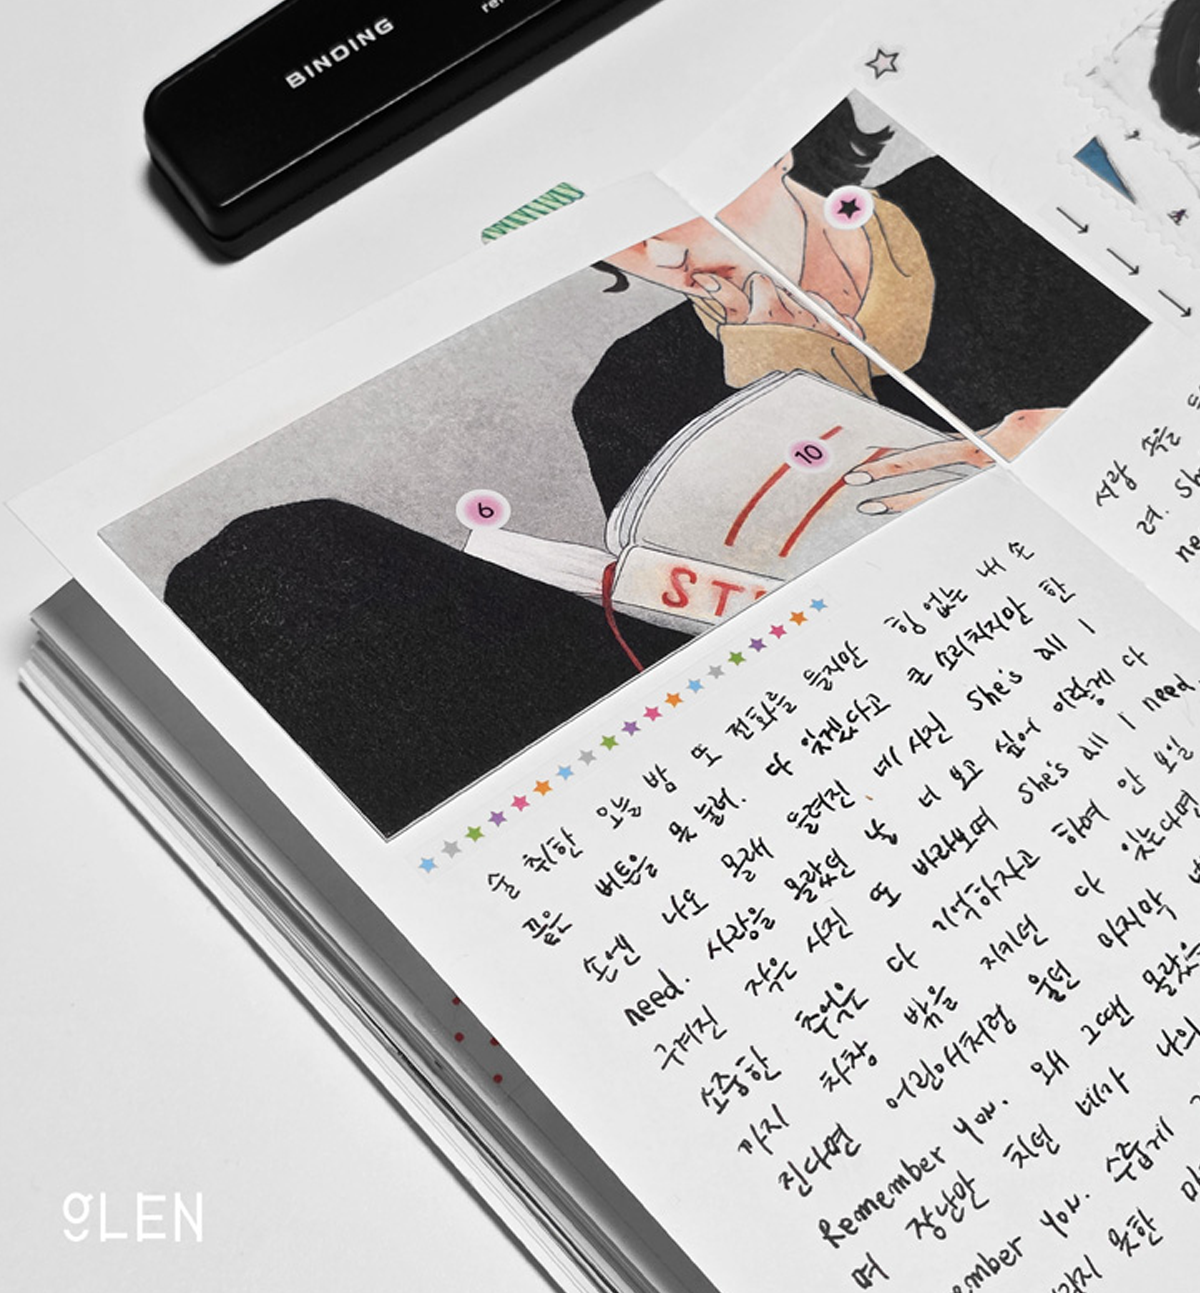 BINDING
6
10
ST
사랑
려. Sh
ne
술 취한 오늘 밤 또 전화를 들지만 힘 없는 내 손
끝은 버튼을 못 눌러. 다 잊겠다고 큰 소리치지만 한
손엔 나도 몰래 들려진 네 사진 She's all I
need. 사랑을 몰랐던 날 너 보고 싶어 이렇게 다
구겨진 작은 사진 또 바라보며 She's all I need.
소중한 추억은 다 기억하자고 하며 안 보일
까지 차창 밖을 지키던 다 있는다면
진다면 어린아이처럼 울던 마지막
Remember you. 왜 그땐 몰랐을
며 장난만 치던 네가 나의
ember you. 수줍게
못한
gLEN